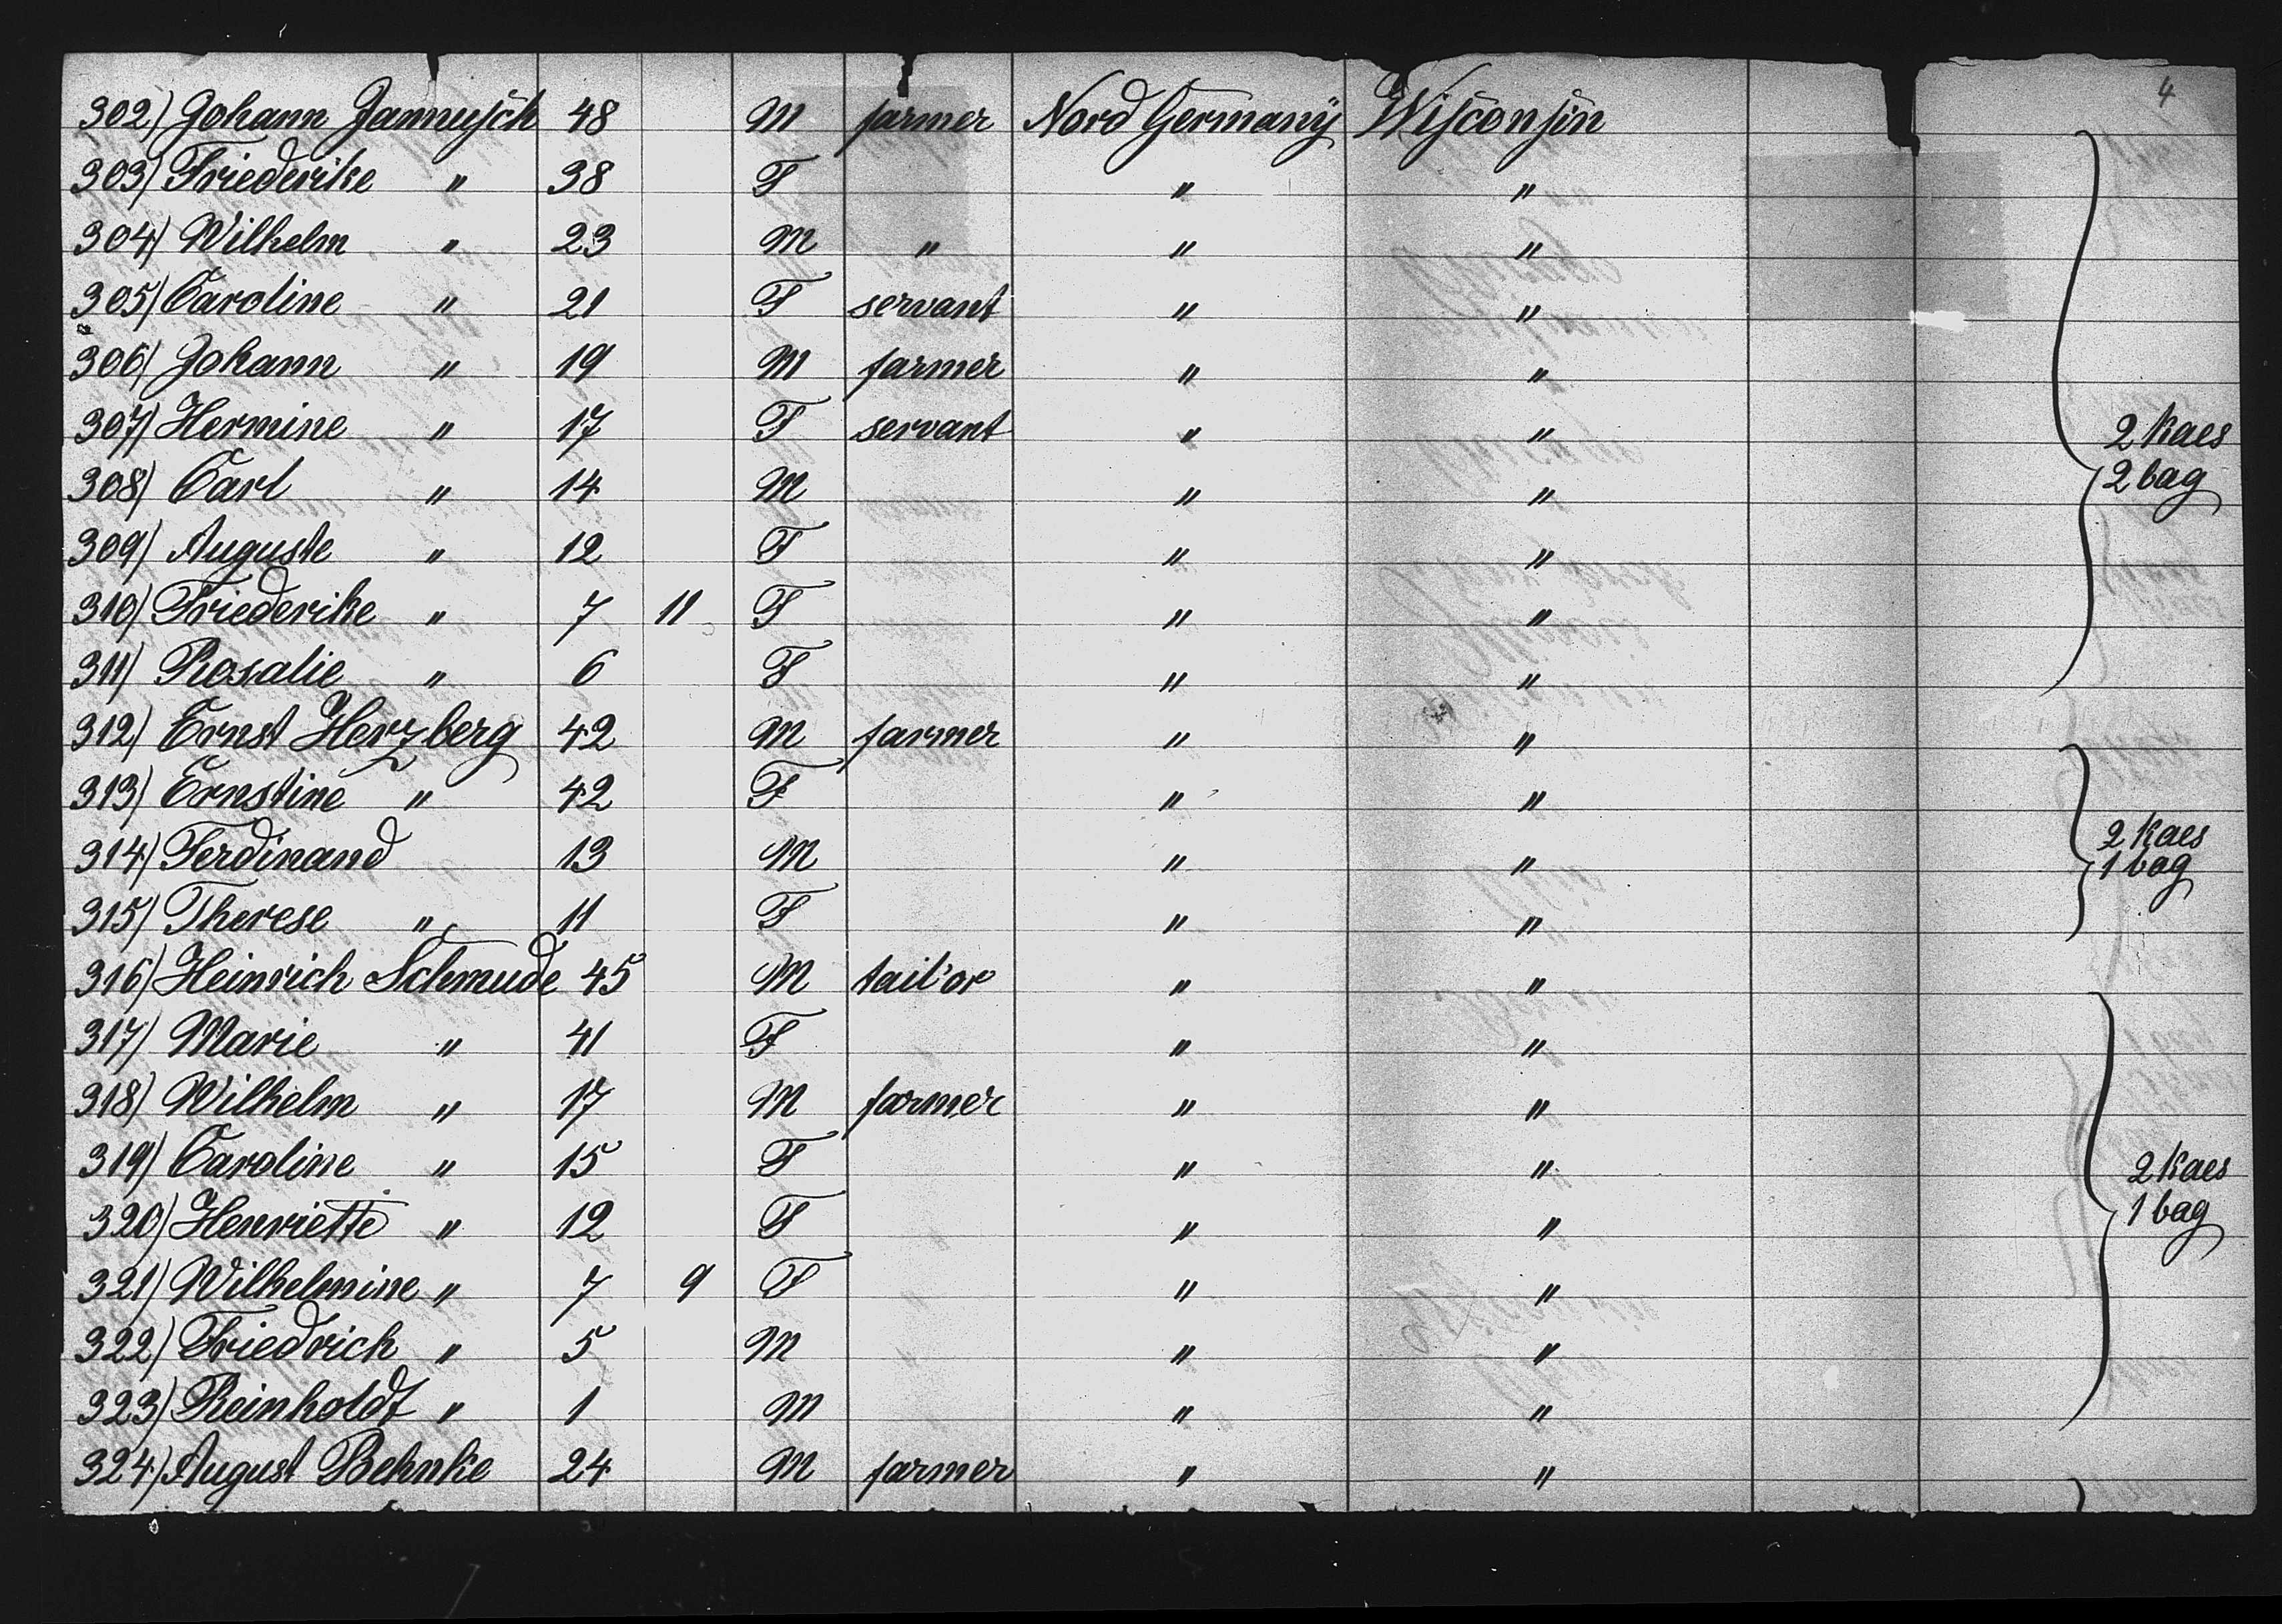 4
302) Johann Jannusch 48 M farmer Nord Germany Wisconsin
303) Friederike " 38 F " "
304) Wilhelm " 23 M " " "
305) Caroline " 21 F servant " "
306) Johann " 19 M farmer " "
307) Hermine " 17 F servant " "
2 kaes
308) Carl " 14 M " "
2 bag
309) Auguste " 12 F " "
310) Friederike " 7 11 F " "
311) Rosalie " 6 F " "
312) Ernst Herzberg 42 M farmer " "
313) Ernstine " 42 F " "
314) Ferdinand 13 M " "
2 kaes
1 bag
315) Therese " 11 F " "
316) Heinrich Schmude 45 M tailor " "
317) Marie " 41 F " "
318) Wilhelm " 17 M farmer " "
319) Caroline " 15 F " "
2 kaes
320) Henriette " 12 F " "
1 bag
321) Wilhelmine " 7 9 F " "
322) Friedrich " 5 M " "
323) Reinholdt " 1 M " "
324) August Behnke 24 M farmer " "